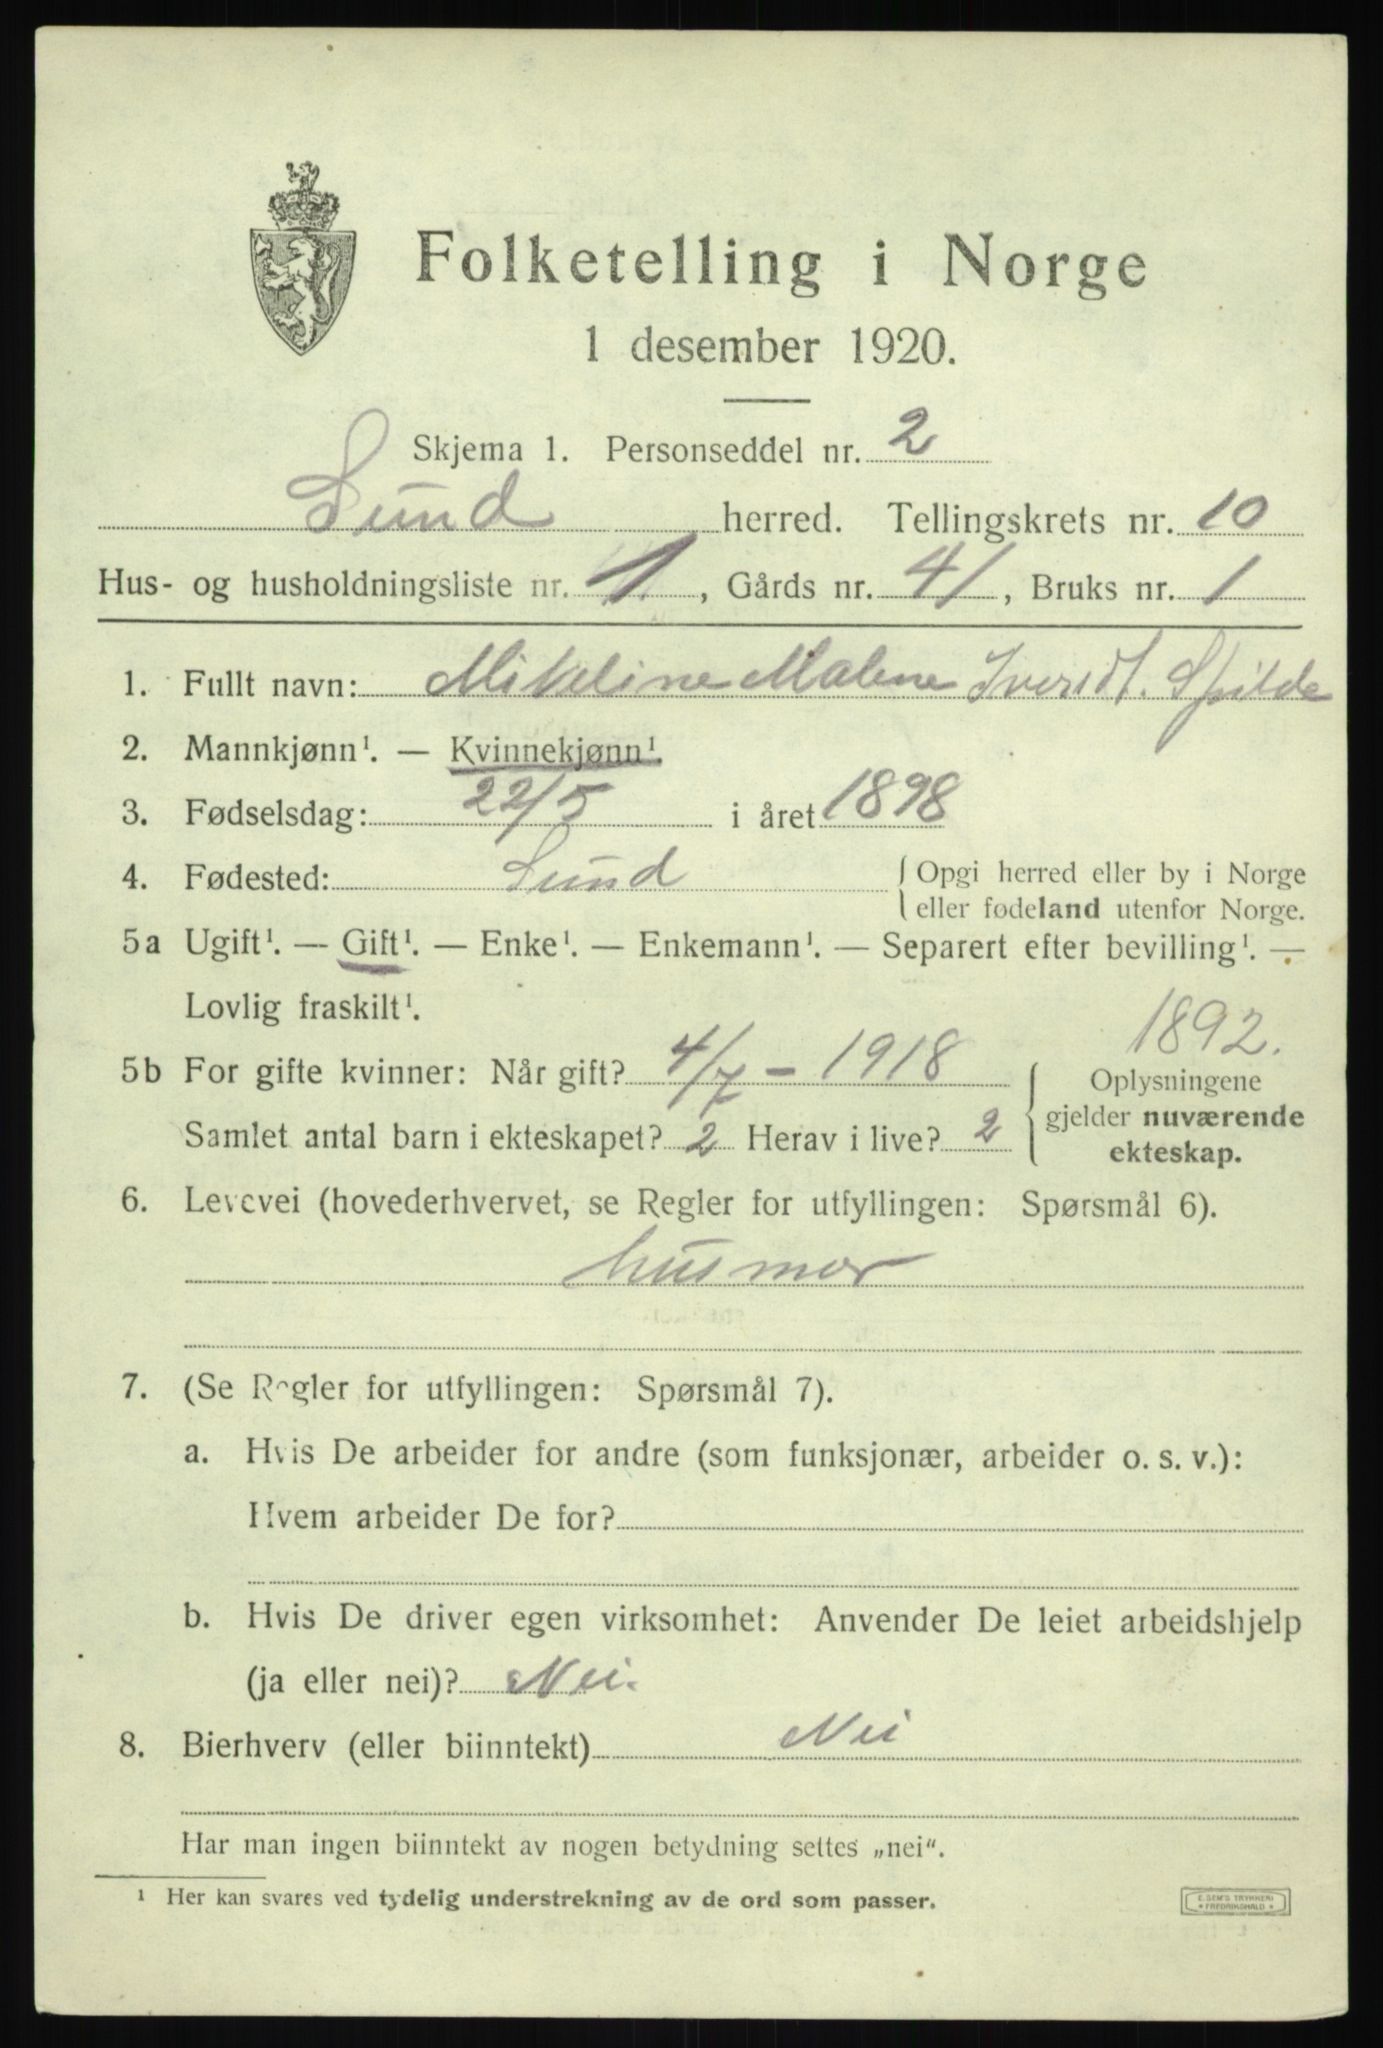 Folketelling i Norge
1 desember 1920.
Skjema 1. Personseddel nr. 2
Sund herred. Tellingskrets nr. 10
Hus- og husholdningsliste nr. 1, Gårds nr. 41, Bruks nr. 1
1. Fullt navn: Mikeline Malene Iversdt. Spilde
2. Mannkjønn¹. — Kvinnekjønn¹.
3. Fødselsdag: 22/5 i året 1898
4. Fødested: Sund { Opgi herred eller by i Norge
eller fødeland utenfor Norge.
5a Ugift¹. — Gift¹. — Enke¹. — Enkemann¹. — Separert efter bevilling¹. —
Lovlig fraskilt¹.
1892.
5b For gifte kvinner: Når gift? 4/7 - 1918 { Oplysningene
gjelder nuværende
Samlet antal barn i ekteskapet? 2 Herav i live? 2
ekteskap.
6. Levevei (hovederhvervet, se Regler for utfyllingen: Spørsmål 6).
husmor
7. (Se Regler for utfyllingen: Spørsmål 7).
a. Hvis De arbeider for andre (som funksjonær, arbeider o. s. v.):
Hvem arbeider De for?
b. Hvis De driver egen virksomhet: Anvender De leiet arbeidshjelp
(ja eller nei)? Nei.
8. Bierhverv (eller biinntekt) Nei
Har man ingen biinntekt av nogen betydning settes „nei“.
¹ Her kan svares ved tydelig understrekning av de ord som passer.
E. SEM'S TRYKKERI
* FREDRIKSHALD *